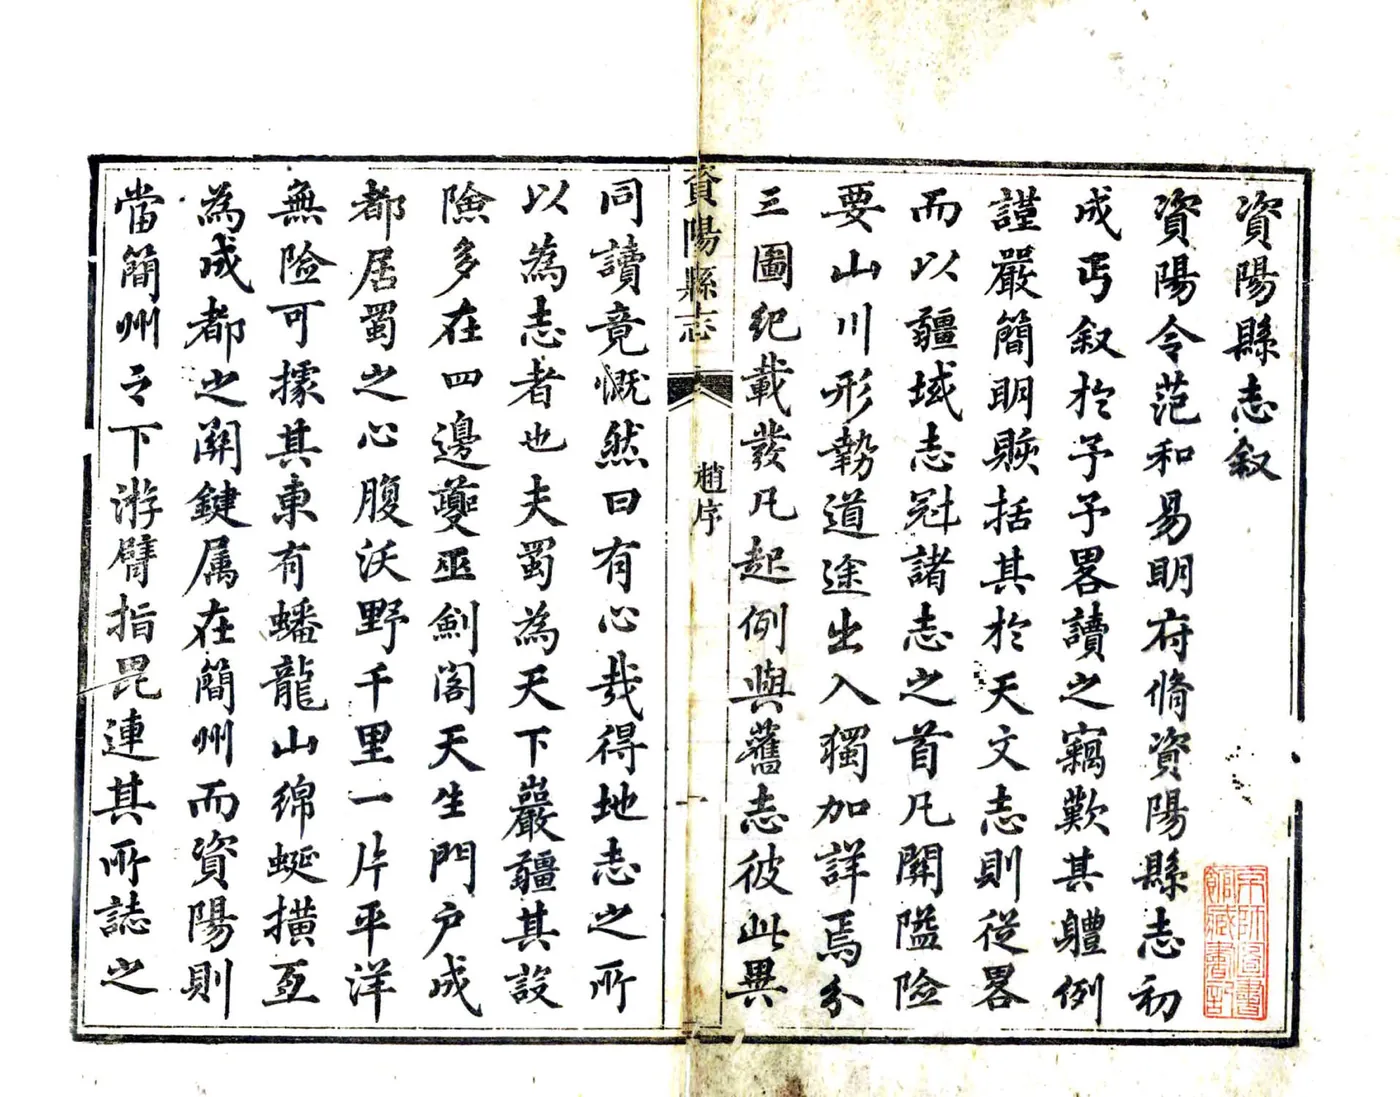 資陽縣志叙
資陽令范和易明府脩資陽縣志初
成丐叙於予予畧讀之竊歎其軆例
謹嚴簡明賅括其於天文志則從畧
而以疆域志冠諸志之首凡關隘險
要山川形勢道途出入獨加詳焉分
三圖紀載發凡起例與舊志彼此異
資陽縣志
趙序
一
同讀竟慨然曰有心哉得地志之所
以為志者也夫蜀為天下巖疆其設
險多在四邊夔巫劍閣天生門户成
都居蜀之心腹沃野千里一片平洋
無險可據其東有蟠龍山綿蜒横亙
為成都之關鍵属在簡州而資陽則
當簡州之下游臂指毘連其所誌之
京師圖書
館藏書記